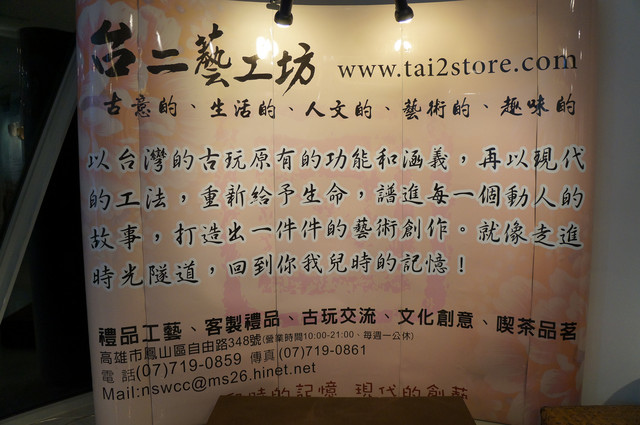 台二藝工坊 www.tai2store.com
古意的、生活的、人文的、藝術的、趣味的
以台灣的古玩原有的功能和涵義，再以現代
的工法，重新給予生命，譜進每一個動人的
故事，打造出一件件的藝術創作。就像走進
時光隧道，回到你我兒時的記憶！
禮品工藝、客製禮品、古玩交流、文化創意、喫茶品茗
高雄市鳳山區自由路348號(營業時間10:00-21:00、每週一公休)
電話(07)719-0859 傳真(07)719-0861
Mail:nswcc@ms26.hinet.net
時的記憶 現代的創藝